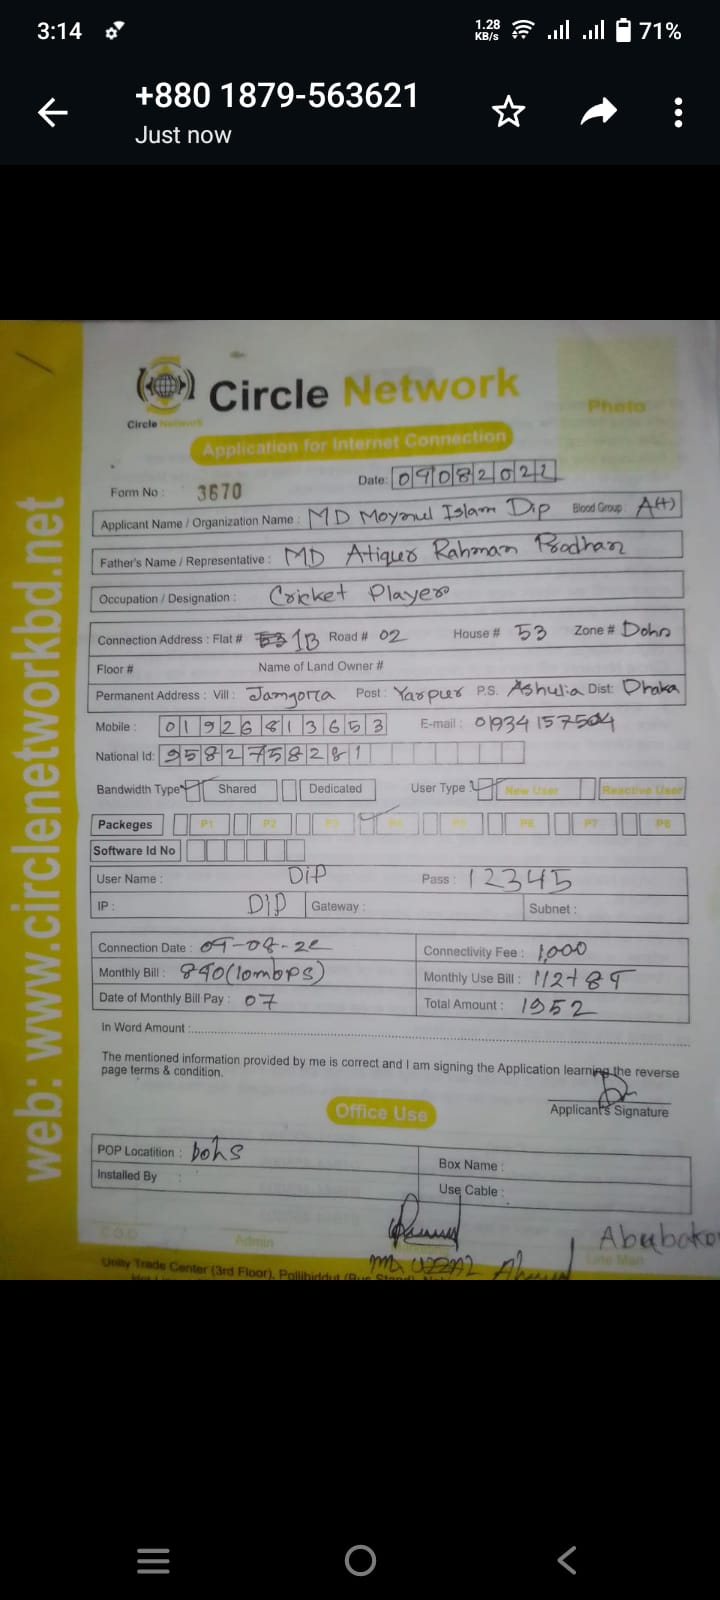 3:14 1.28 KB/s 71%
+880 1879-563621
Just now
Circle Network
Circle Network
Photo
Application for Internet Connection
Form No : 3670 Date: 09082022
Applicant Name / Organization Name : MD Moyonul Islam Dip Blood Group: A(+)
Father's Name / Representative : MD Atiqur Rahman Prodhan
Occupation / Designation : Cricket Player
Connection Address : Flat # 1B Road # 02 House # 53 Zone # Dohs
Floor # Name of Land Owner #
Permanent Address : Vill : Jamgora Post : Yarpur P.S. Ashulia Dist: Dhaka
Mobile : 01926813653 E-mail : 01934157504
National Id: 9582758281
Bandwidth Type Shared Dedicated User Type : New User Reactive User
Packeges P1 P2 P3 P4 P5 P6 P7 P8
Software Id No
User Name : DIP Pass : 12345
IP : DIP Gateway : Subnet :
Connection Date : 09-08-22 Connectivity Fee : 1,000
Monthly Bill : 840(10mbps) Monthly Use Bill : 112+
Date of Monthly Bill Pay : 07 Total Amount : 1952
In Word Amount :
The mentioned information provided by me is correct and I am signing the Application learning the reverse
page terms & condition.
Applicant's Signature
Office Use
POP Locatition : bohs Box Name :
Installed By : Use Cable :
C.O.O Admin Line Man
Unity Trade Center (3rd Floor), Pollibiddut (Bus Stand)
web: www.circlenetworkbd.net